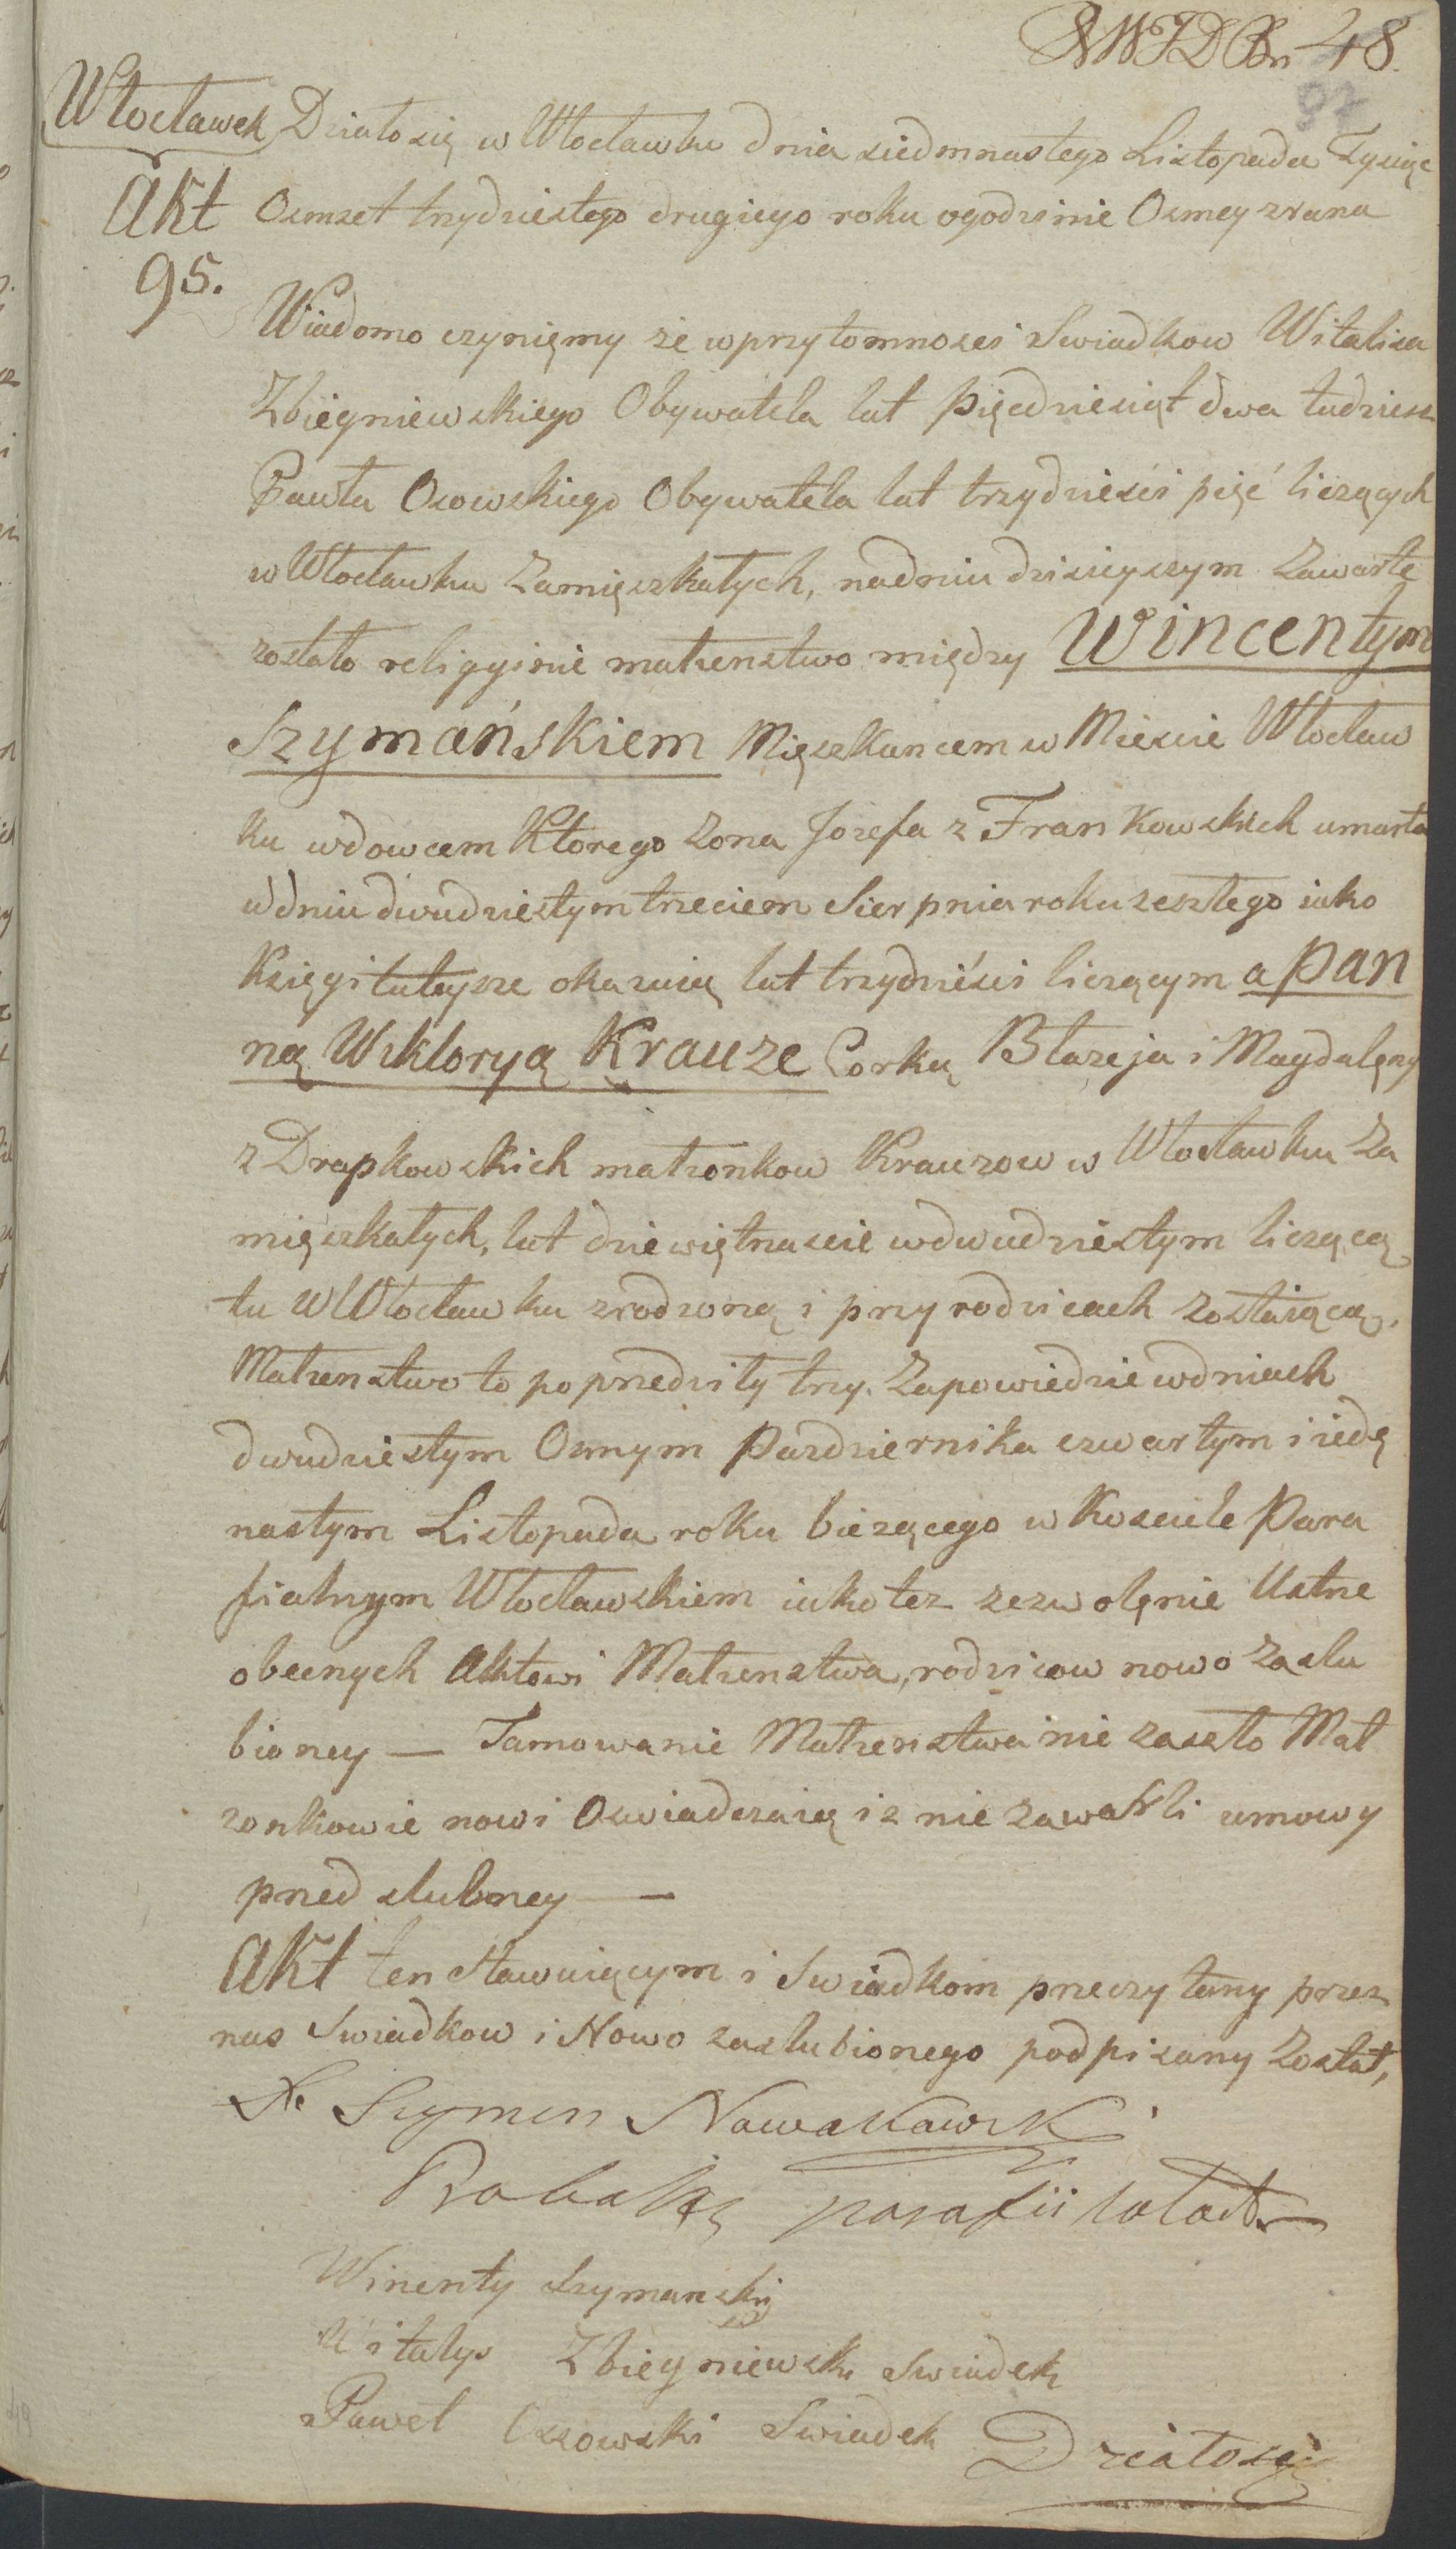 48.
97
Włocławek Działo się w Włocławku dnia siedmnastego Listopada Tysiąc
Akt Osmset trzydziestego drugiego roku ogodzinie Osmey zrana
95.
Wiadomo czynięmy że wprzytomnosci Swiadkow Witalisa
Zbiegniewskiego Obywatela lat pięcdziesiąt dwa tudziesz
Pawła Osowskiego Obywatela lat trzydziesci pięć liczących
w Włocławku Zamięszkałych, nadniu dzisieyszym Zawarte
zostało religyinie małzenstwo między Wincentym
Szymańskiem Mięszkancem w Miescie Włocław
ku wdowcem Ktorego Zona Jozefa z Frankowskich umarła
w dniu dwudziestym trzeciem Sierpnia roku zeszłego iako
Księgi tuteysze okazuią lat trzydzieści liczącym a Pan
ną Wiktoryą Krauze Corką Błazeja i Magdalęny
z Drapkowskich małzonkow Krauzow w Włocławku Za
mięszkałych, lat dziewiętnascie wdwudziestym liczącą
tu w Włocławku zrodzoną i przy rodzicach zostaiącą.
Małzenstwo to poprzedziły trzy Zapowiedzie wdniach
dwudziestym Osmym Pazdziernika czwartym i iedę
nastym Listopada roku biezącego w Kosciele Para
fialnym Włocławskiem iako tez zezwolęnie Ustne
obecnych Aktowi Małzenstwa, rodzicow nowo Zaslu
bioney — Tamowanie Małzenstwa nie zaszło Mał
zonkowie nowi Oswiadczaią iz nie zawarli umowy
przed slubney —
Akt ten stawaiącym i Swiadkom przeczytany przez
nas Swiadkow i Nowo zaslubionego podpisany Został,
X. Szymon Nowakowski
parafii
Winenty Szymanski
Witalys Zbiegniewski Swiadek
Paweł Ossowski Swiadek Działo się